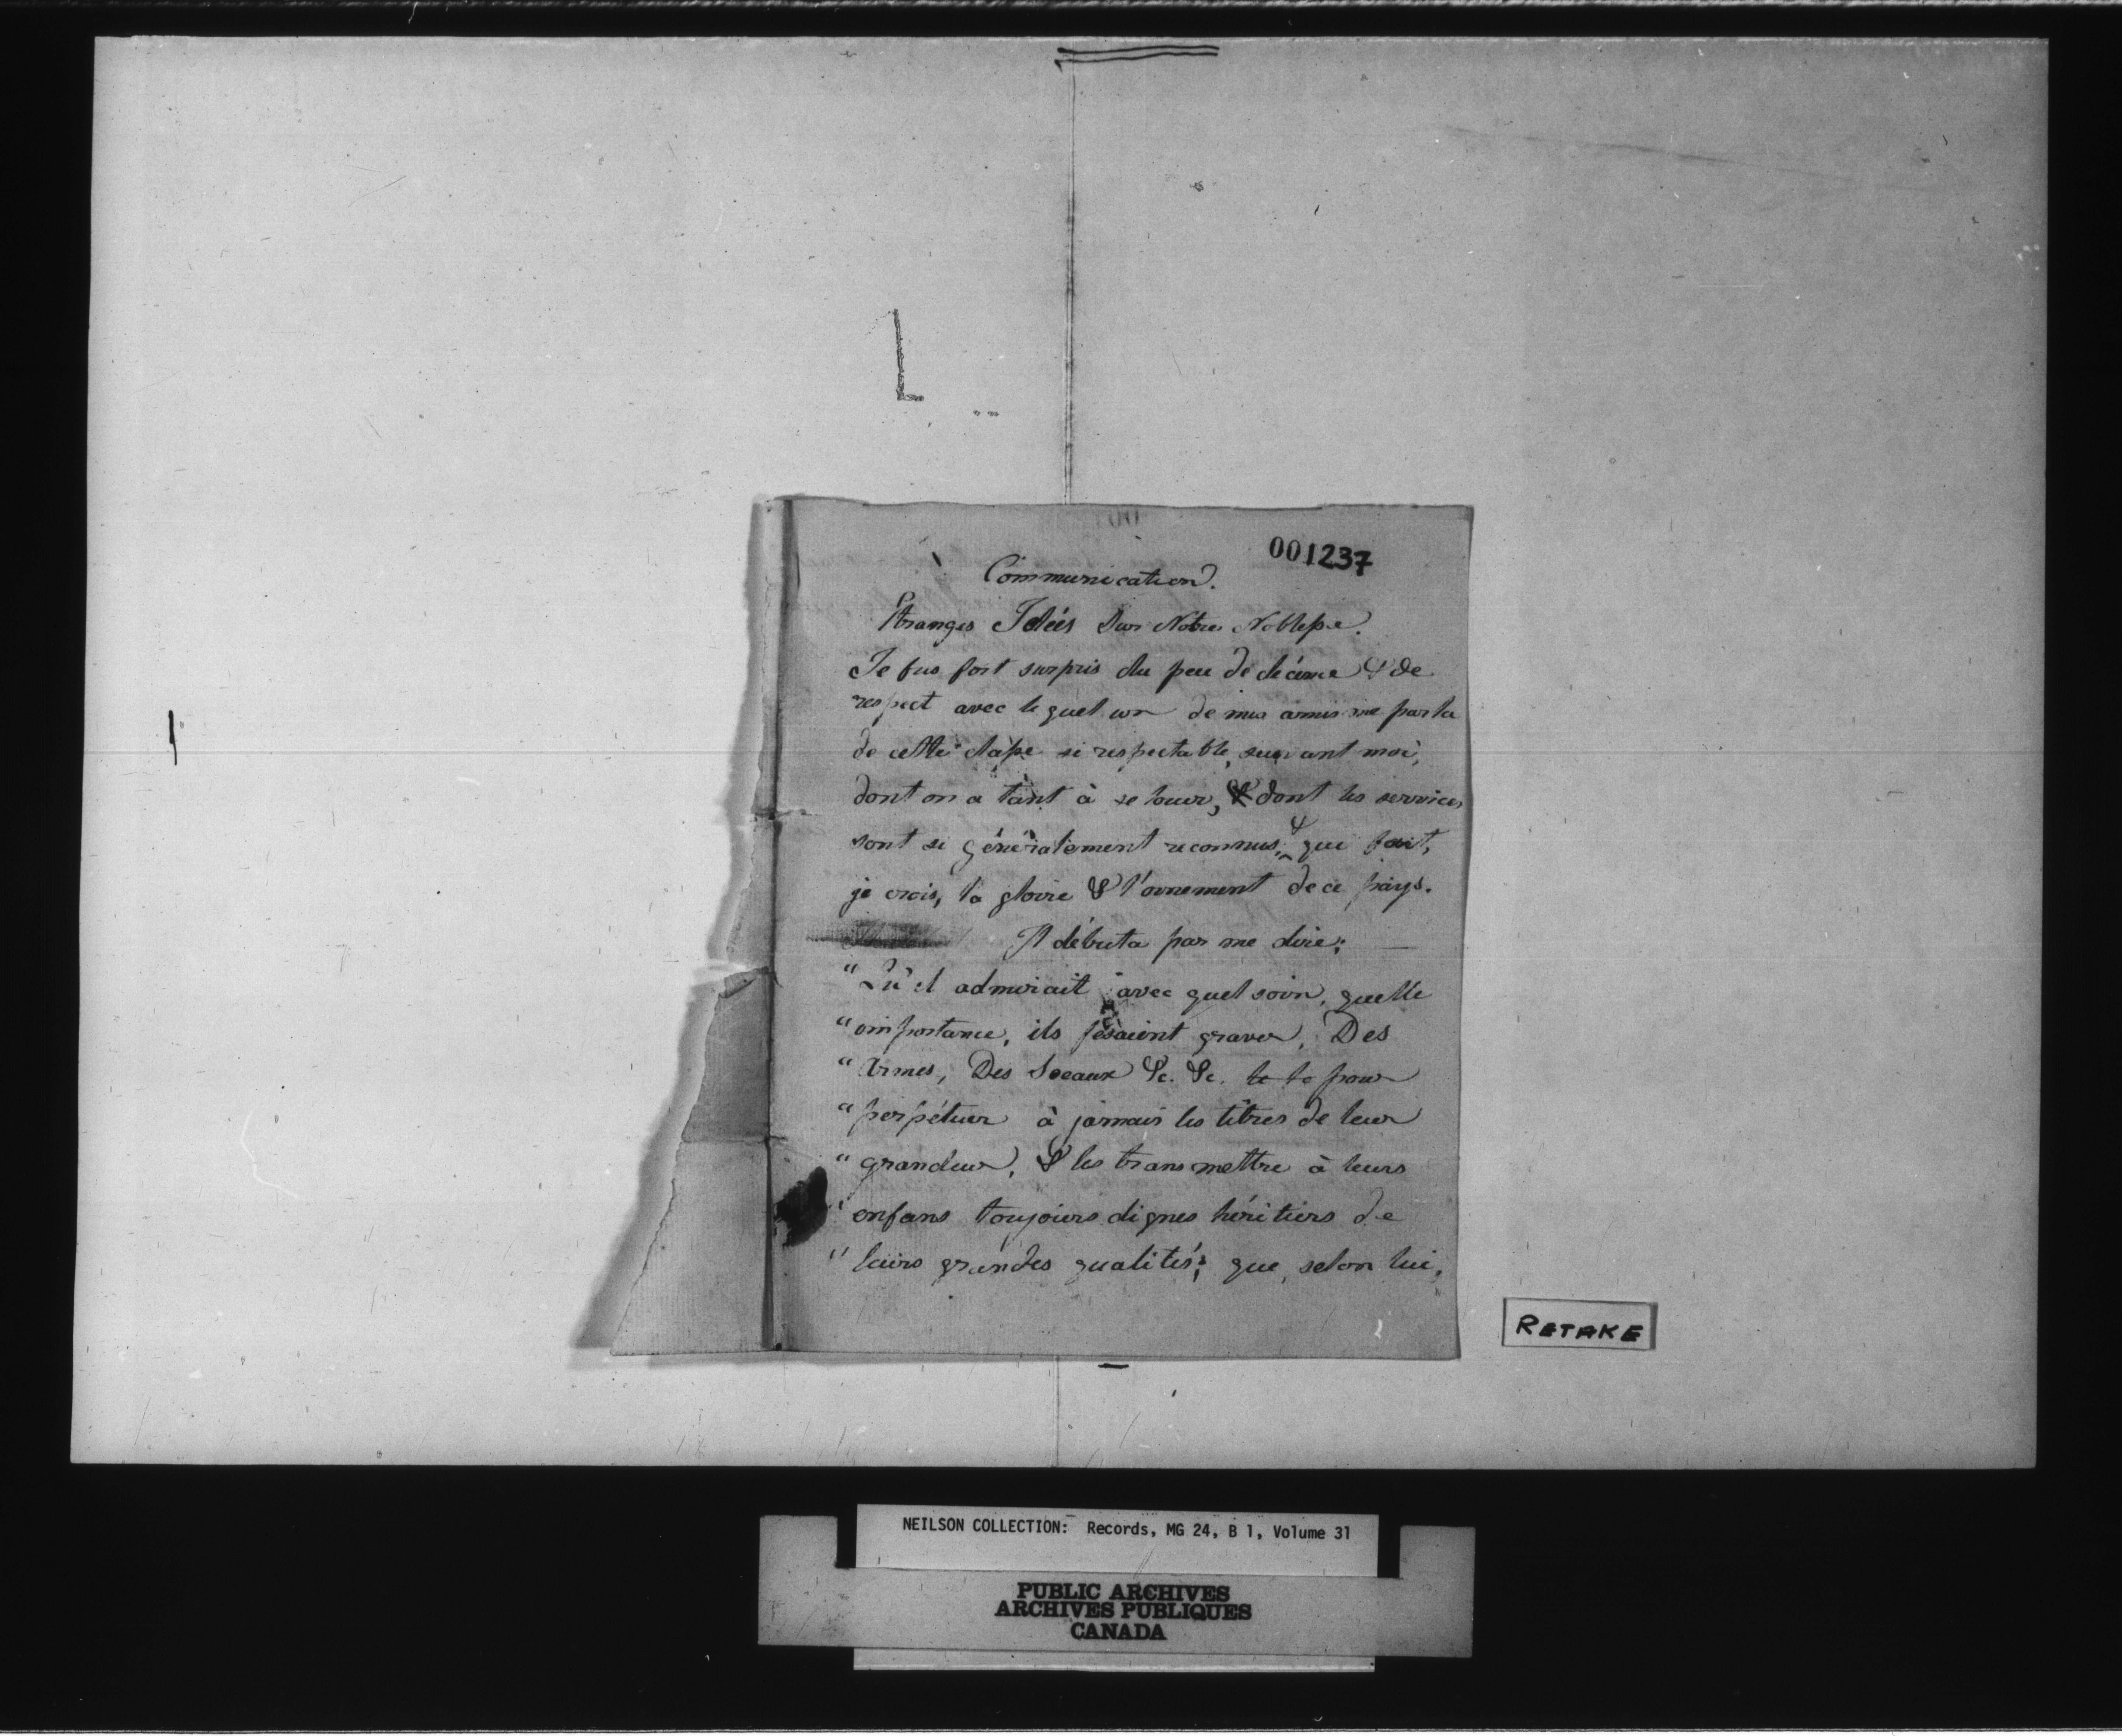 001237
Communication.
Etranges Idées Sur Notre Noblesse.
Je fus fort surpris du peu de décence & de
respect avec lequel un de mes amis me parla
de cette classe si respectable, suivant moi,
dont on a tant à se louer, & dont les services
sont si généralement reconnus, & qui fait,
je crois, la gloire & l'ornement de ce pays.
Il débuta par me dire;
"Qu'il admirait avec quel soin, quelle
"importance, ils fesaient graver, Des
"Armes, Des Sceaux &c. &c. pour
"perpétuer à jamais les titres de leur
"grandeur, & les transmettre à leurs
"enfans toujours dignes héritiers de
"leurs grandes qualités; que, selon lui,
RETAKE
NEILSON COLLECTION: Records, MG 24, B 1, Volume 31
PUBLIC ARCHIVES
ARCHIVES PUBLIQUES
CANADA